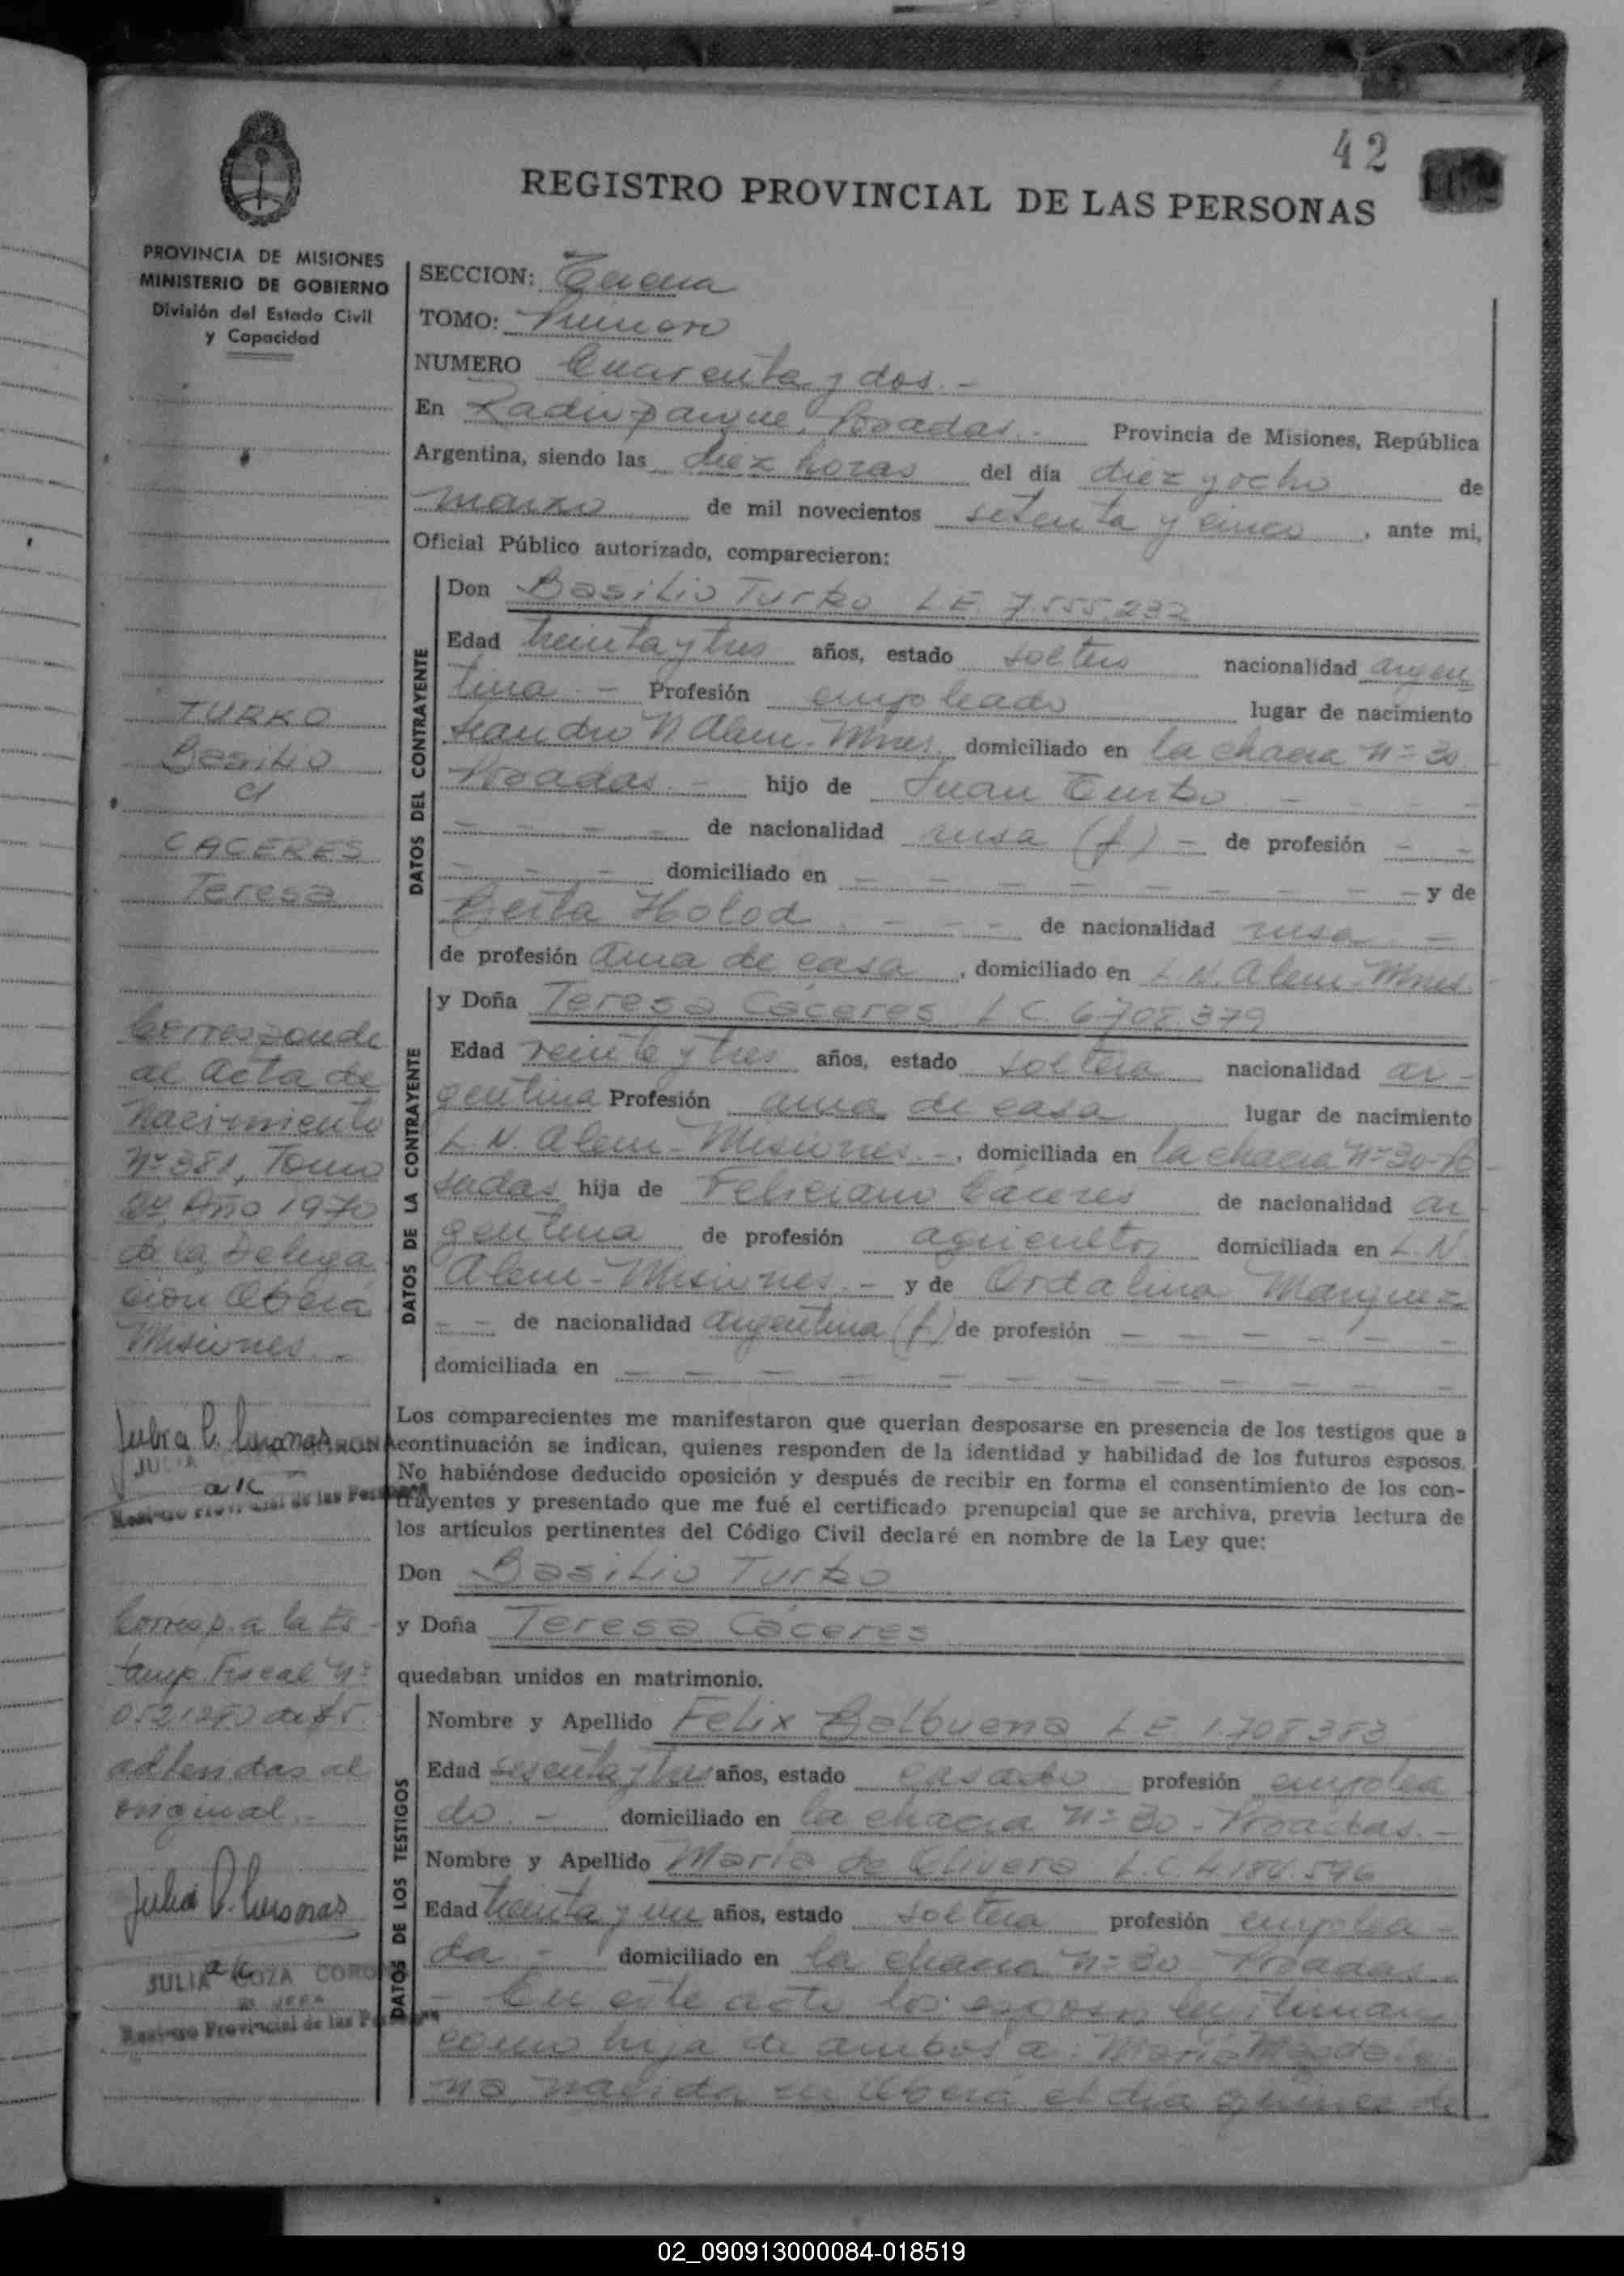 42
REGISTRO PROVINCIAL DE LAS PERSONAS
PROVINCIA DE MISIONES
MINISTERIO DE GOBIERNO
División del Estado Civil
y Capacidad
SECCION: Tercera
TOMO: Primero
NUMERO Cuarenta y dos.-
En Radioparque, Posadas.- Provincia de Misiones, República
Argentina, siendo las diez horas del día diez y ocho de
marzo de mil novecientos setenta y cinco, ante mi,
Oficial Público autorizado, comparecieron:
DATOS DEL CONTRAYENTE
Don Basilio Turko L.E. 7.555.232
Edad treinta y tres años, estado soltero nacionalidad argen
tina.- Profesión empleado lugar de nacimiento
Leandro N Alem-Mnes. domiciliado en la chacra N= 30
Posadas.- hijo de Juan Turko - - -
- - - - de nacionalidad rusa (f) - de profesión - -
- - - domiciliado en - - - - - - - - y de
Berta Holod - - - de nacionalidad rusa. -
de profesión ama de casa, domiciliado en L.N. Alem-Mnes.
DATOS DE LA CONTRAYENTE
y Doña Teresa Cáceres L.C. 6.708.379
Edad veinte y tres años, estado soltera nacionalidad ar-
gentina Profesión ama de casa lugar de nacimiento
L.N. Alem-Misiones.-, domiciliada en la chacra N=30-Po
sadas hija de Feliciano Cáceres de nacionalidad ar
gentina de profesión agricultor domiciliada en L.N.
Alem-Misiones.- y de Ordalina Marquez
- - de nacionalidad argentina (f) de profesión - - - - - -
domiciliada en - - - - - - - - - - -
Los comparecientes me manifestaron que querían desposarse en presencia de los testigos que a
continuación se indican, quienes responden de la identidad y habilidad de los futuros esposos.
No habiéndose deducido oposición y después de recibir en forma el consentimiento de los con-
trayentes y presentado que me fué el certificado prenupcial que se archiva, previa lectura de
los artículos pertinentes del Código Civil declaré en nombre de la Ley que:
Don Basilio Turko
y Doña Teresa Cáceres
quedaban unidos en matrimonio.
DATOS DE LOS TESTIGOS
Nombre y Apellido Felix Balbuena L.E. 1.708.383
Edad sesenta y tres años, estado casado profesión emplea
do.- domiciliado en la chacra N= 30 - Posadas.-
Nombre y Apellido María de Olivera L.C. 4.180.596
Edad treinta y un años, estado soltera profesión emplea-
da - domiciliado en la chacra N= 30 Posadas.
- En este acto los esposos legitiman
como hija de ambos a: María Magdale
na nacida en Oberá el día quince de
TURKO
Basilio
c/
CACERES
Teresa
Corresponde
al Acta de
Nacimiento
Nº 381, Tomo
2º, Año 1970
de la Delega
ción Oberá
Misiones.-
JULIA
a/c
Registro Provincial de las Personas
Corresp. a la Es-
tamp. Fiscal Nº
0521280 de $5
adheridas al
original.-
JULIA
a/c
Registro Provincial de las Personas
02_090913000084-018519